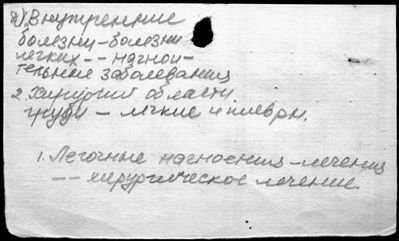 2). Внутренние
болезни – болезни
легких – – нагнои-
тельные заболевания
2. Хирургия области
груди – легкие и плевры.
1. Легочные нагноения – лечения
– – хирургическое лечение.